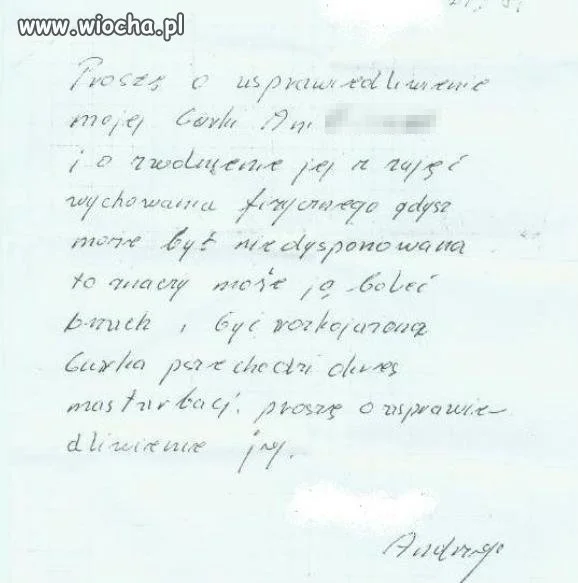 www.wiocha.pl
Proszę o usprawiedliwienie
mojej Curki Ani
i o zwolnienie jej z zajęć
wychowania fizycznego gdysz
morze być niedysponowana
to znaczy może ją boleć
brzuch i być rozkojarzona
Curka przechodzi okres
masturbacji. proszę o usprawie-
dliwienie jej.
Andrzej